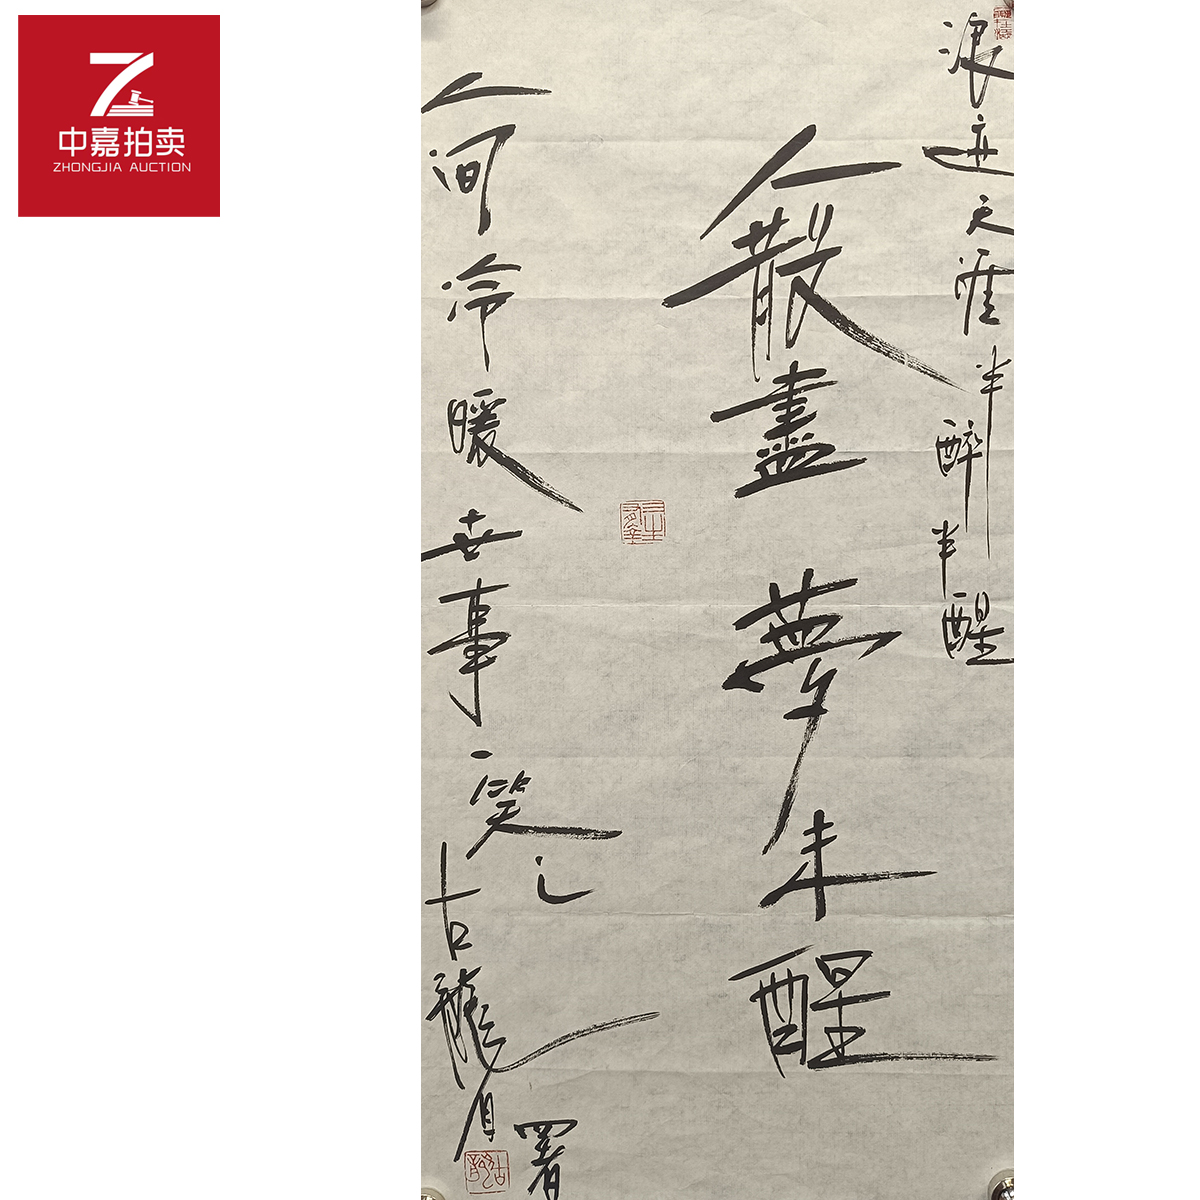 中嘉拍卖
ZHONGJIA AUCTION
浪迹天涯半醉半醒
人散盡 夢未醒
人间冷暖世事一笑之
古龍自署